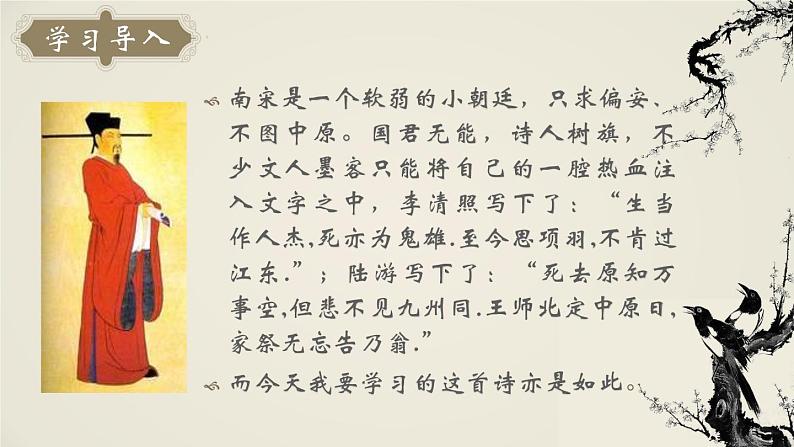 学习导入
南宋是一个软弱的小朝廷，只求偏安、
不图中原。国君无能，诗人树旗，不
少文人墨客只能将自己的一腔热血注
入文字之中，李清照写下了：“生当
作人杰,死亦为鬼雄.至今思项羽,不肯过
江东.”；陆游写下了：“死去原知万
事空,但悲不见九州同.王师北定中原日,
家祭无忘告乃翁.”
而今天我要学习的这首诗亦是如此。